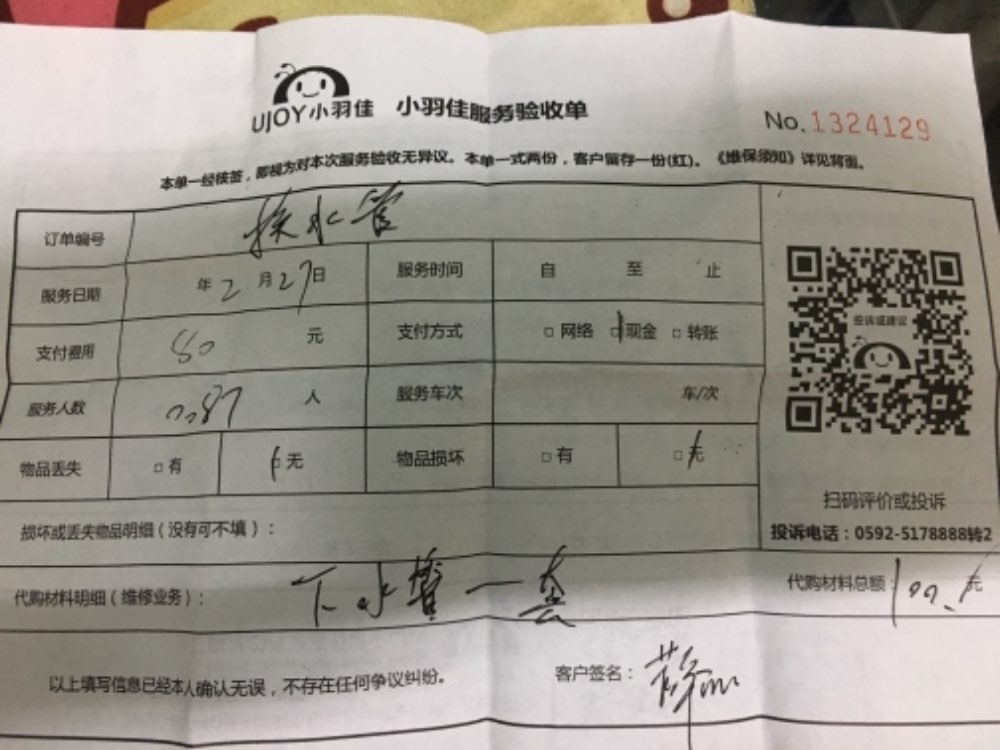 UJOY小羽佳 小羽佳服务验收单
No.1324129
本单一经核签，即视为对本次服务验收无异议。本单一式两份，客户留存一份(红)。《维保须知》详见背面。
订单编号 换水管
服务日期 年2月27日 服务时间 自 至 止
支付费用 80 元 支付方式 □网络 □现金 □转账
服务人数 人 服务车次 车/次
物品丢失 □有 □无 物品损坏 □有 □无
投诉或建议
扫码评价或投诉
投诉电话：0592-5178888转2
损坏或丢失物品明细（没有可不填）：
代购材料明细（维修业务）： 下水管一套 代购材料总额： 100. 元
以上填写信息已经本人确认无误，不存在任何争议纠纷。 客户签名：